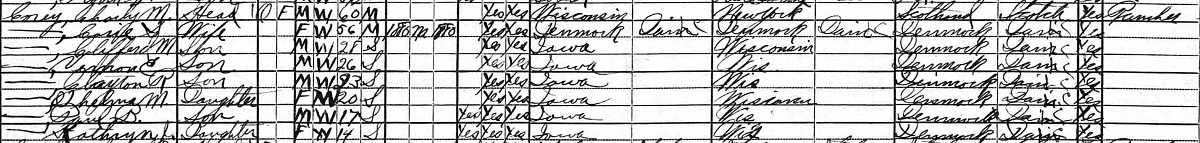 Corey, M. Head O F M W 60 M Yes Yes Wisconsin New York Scotland Scotch Yes Rancher
Wife F W 56 M Yes Yes Denmark Danish Denmark Danish Denmark Danish Yes
M. Son M W 28 S Yes Yes Iowa Wisconsin Denmark Danish Yes
Son M W 26 S Yes Yes Iowa Wis Denmark Danish Yes
Clayton R. Son M W 23 S Yes Yes Iowa Wis Denmark Danish Yes
Thelma M. Daughter F W 20 S Yes Yes Iowa Wisconsin Denmark Danish Yes
Paul D. Son M W 17 S Yes Yes Yes Iowa Wis Denmark Danish Yes
Kathryn J. Daughter F W 14 S Yes Yes Yes Iowa Wis Denmark Danish Yes